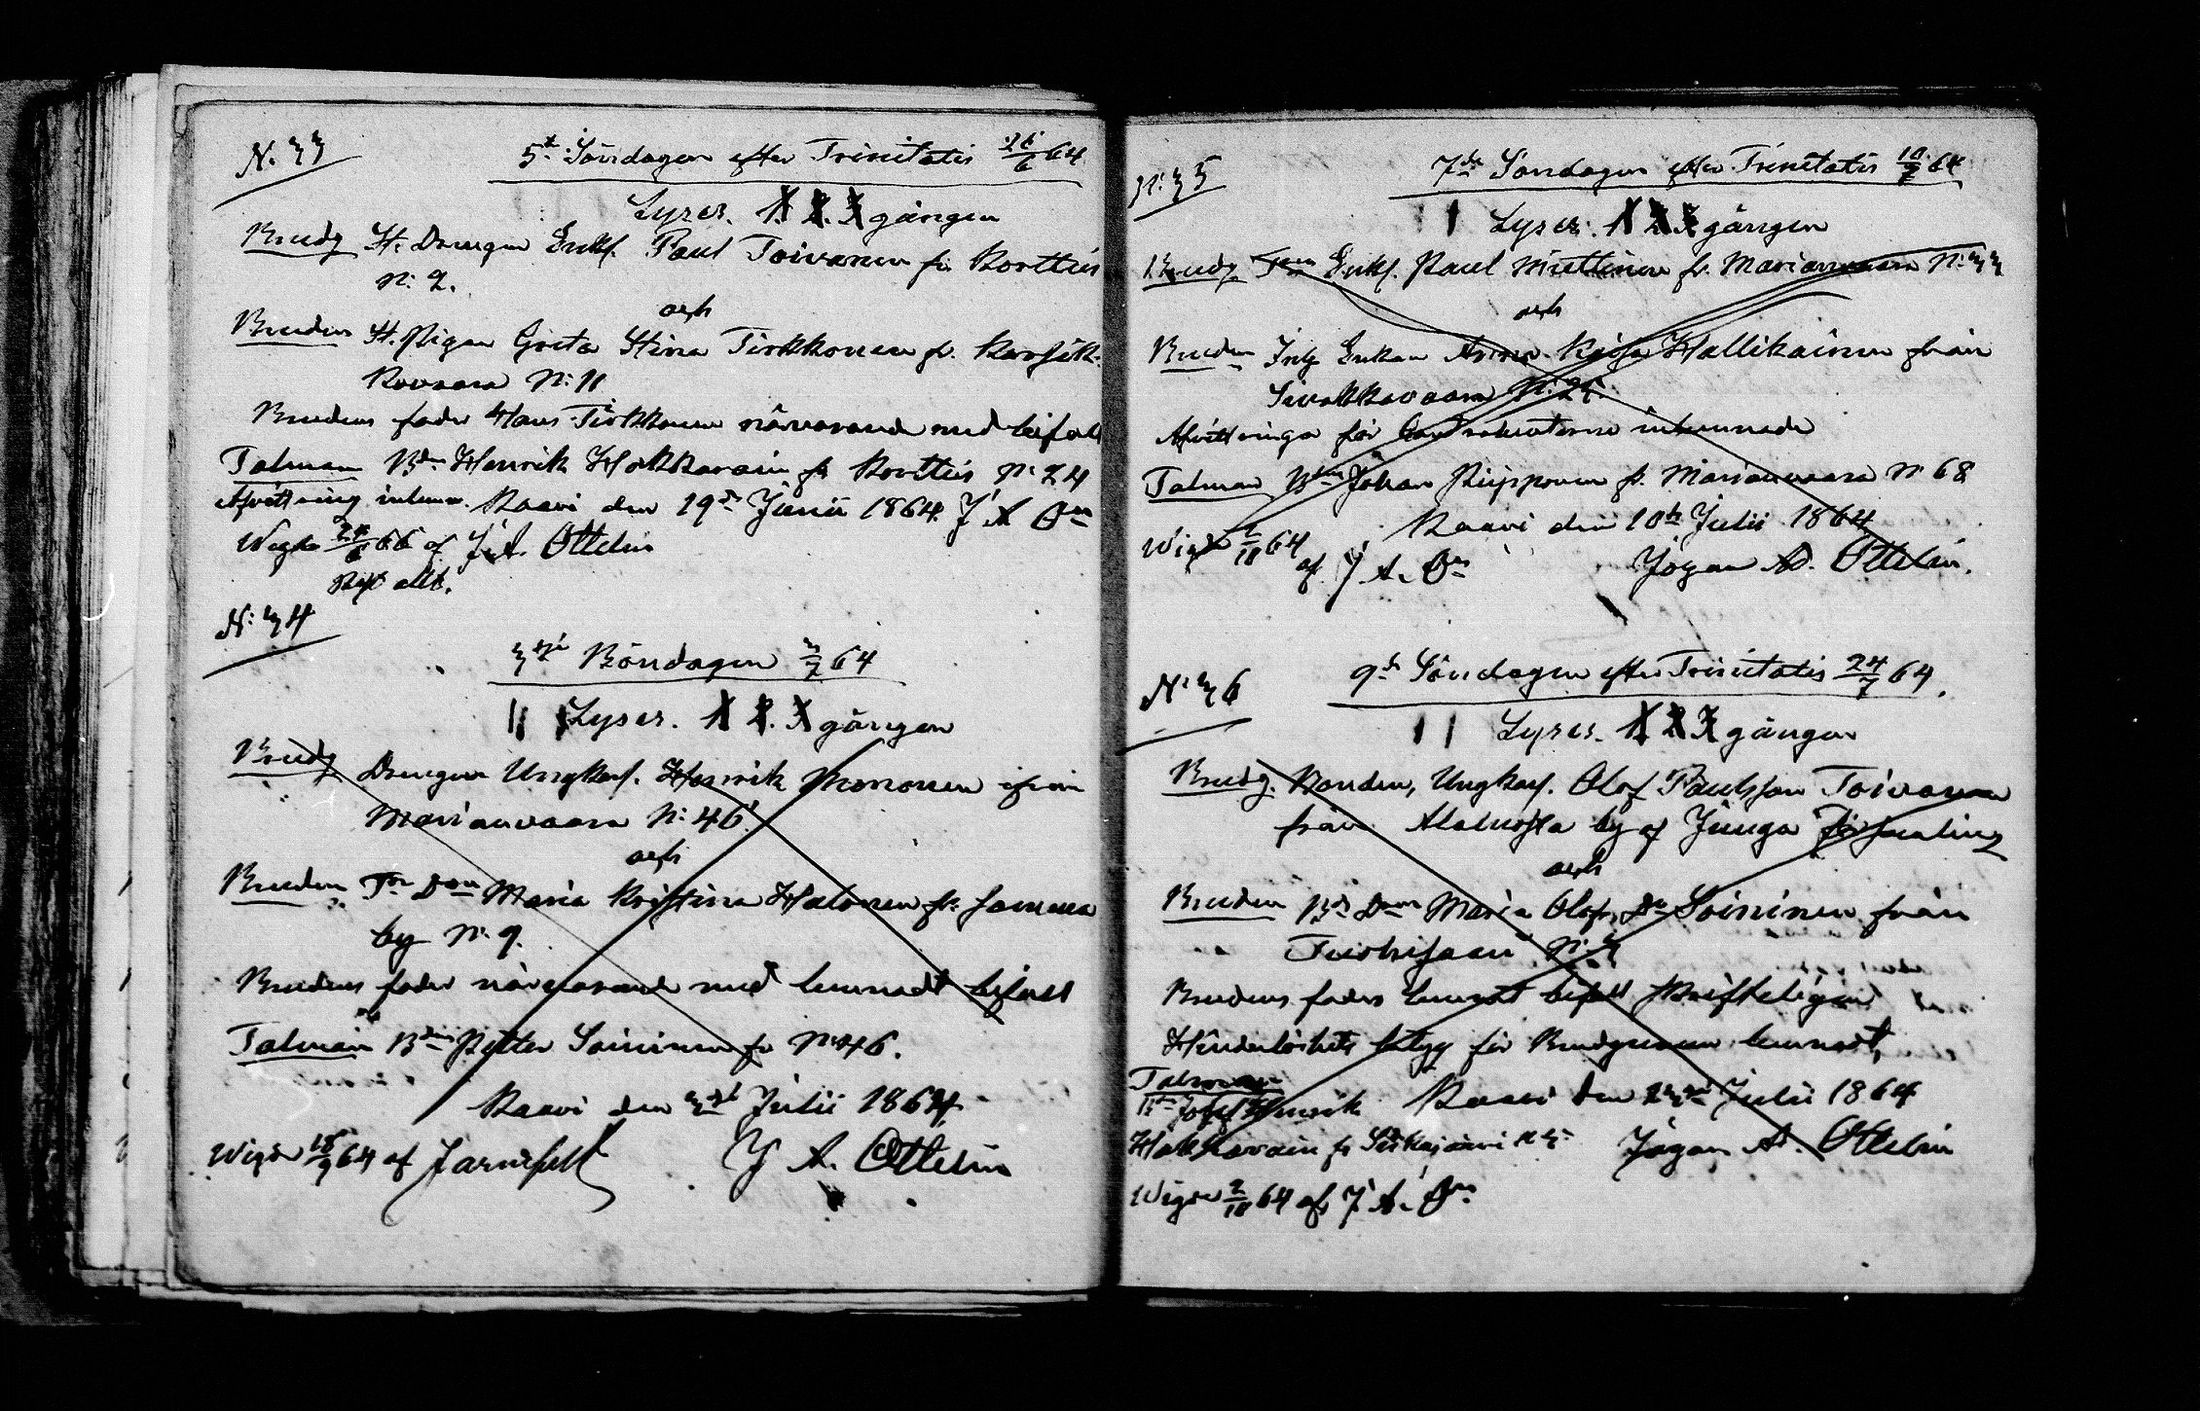 N. 33
5te Söndagen efter Trinitatis 26/6 64
Lyses. 1. 2. 3 gången
Brudg St. Drengen Enkl. Paul Toivanen fr. Korttis
N: 2.
och
Bruden St. Pigan Greta Stina Tirkkonen fr.
N: 11
Brudens fader Hans Tirkkonen närvarande med bifall
Talman Bdn Henrik Hakkarain fr Korttis N: 24
Afvittring inlemn. Kaavi den 19de Junii 1864. J A On
Wigde 24/6 66 af J. A. Ottelin
allt.
N: 34
3dje Böndagen 3/7 64
Lyses. 1 2. 3 gången
Brudg Drengen Ungkarl. Henrik Mononen ifrån
Marianvaara N: 46
och
Bruden Tr Don Maria Kristina Halonen fr.
by N: 9.
Brudens fader närvarande med lemnadt bifall
Talman Bdn Petter Soininen fr N: 46.
Kaavi den 3dje Julii 1864
Wigde 18/9 64 af Jarnefelt J A. Ottelin
N: 35
7de Söndagen efter Trinitatis 10/7 64
Lyses. 1 2 3 gången
Brudg Enkl. Paul Miettinen fr. Marianvaara N: 33
och
Bruden Enkan Anna Kaisa Hallikainen från
Sivakkavaara N: 25.
Afvittringa för inlemnade
Talman Bdn Johan Piipponen fr. Marianvaara N 68
Kaavi den 10de Julii 1864
Wigde 2/10 64 af J. A. On Jögan Ad. Ottelin.
N: 36
9de Söndagen efter Trinitatis 24/7 64.
Lyses. 1 2 3 gången
Brudg. Bonden, Ungkarl. Olof Paulsson Toivanen
från Alaluosta by af Juuga Församling
och
Bruden Bds Don Maria Olofs Dr Soininen från
N: 3
Brudens faders lemnat bifall skrifteligen
Hinderlöshets betyg för Brudgumen lemnadt,
Talman
Bdn Josef Henrik Kaavi den 23de Julii 1864
Hakkarain fr Siikajärvi N 3. Jögan A. Ottelin
Wigde 2/10 64 af J. A. On